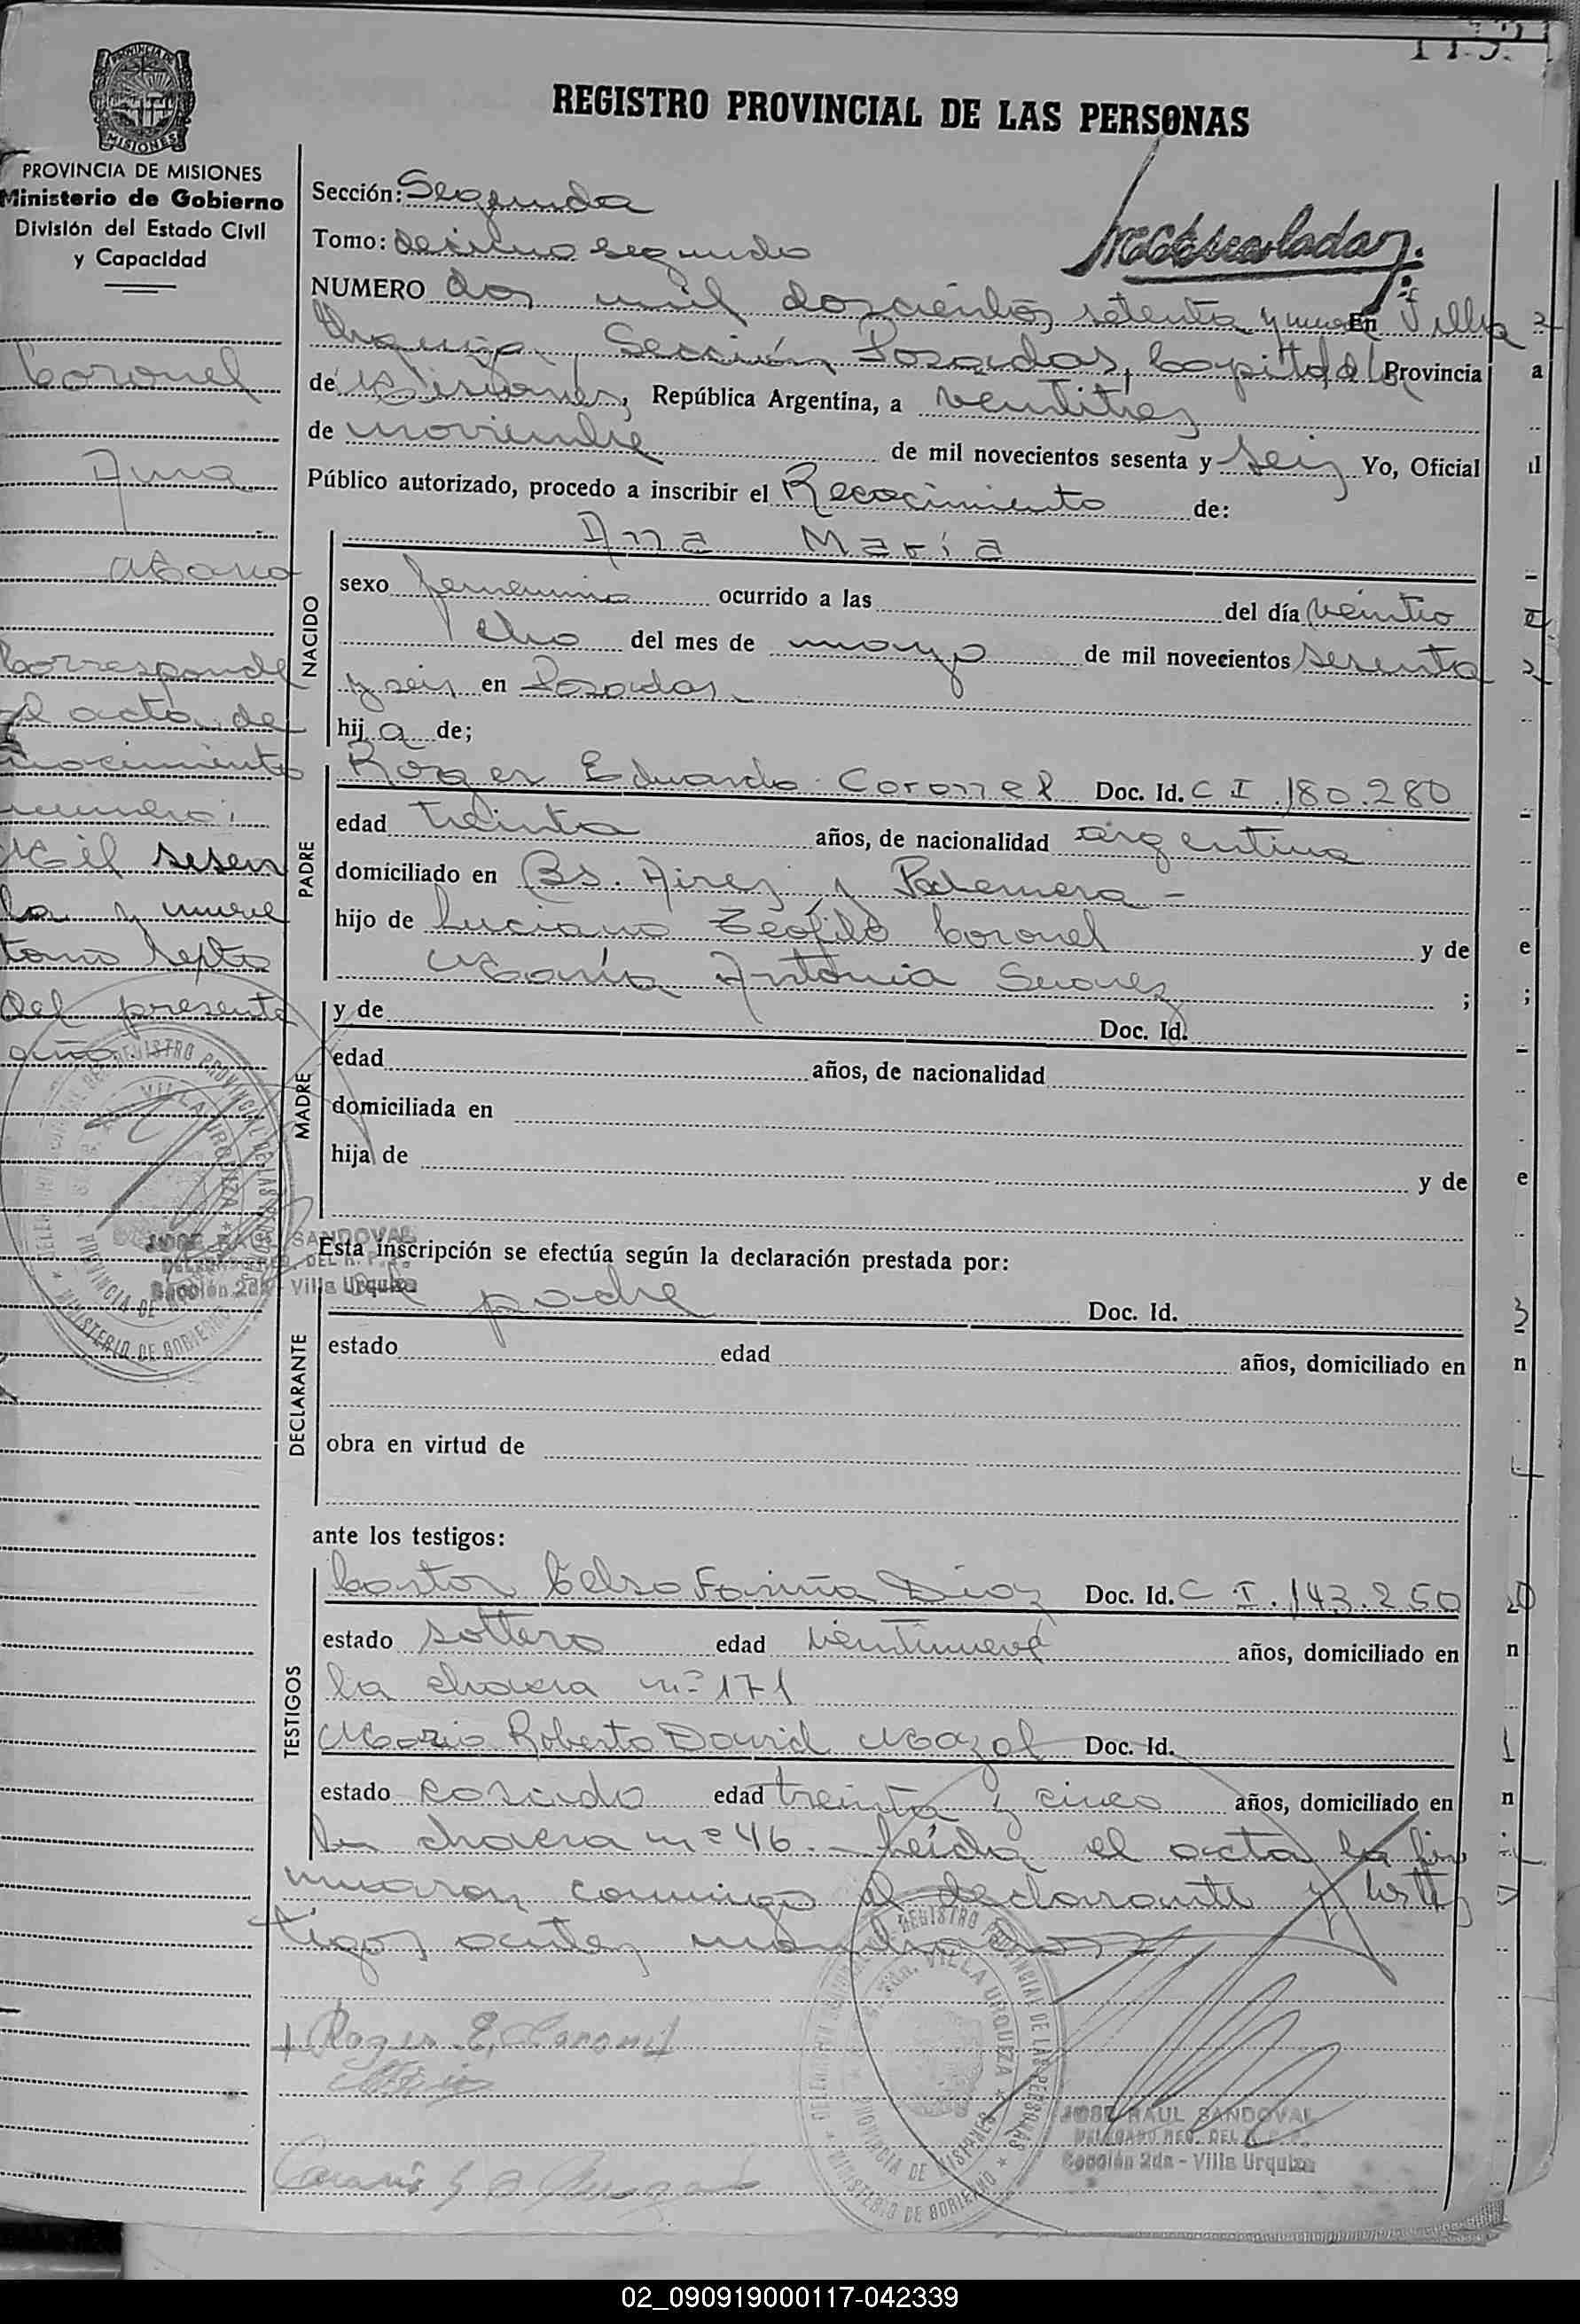 REGISTRO PROVINCIAL DE LAS PERSONAS
PROVINCIA DE MISIONES
Ministerio de Gobierno
División del Estado Civil
y Capacidad
Coronel
Ana
María
Corresponde
al acta de
nacimiento
número:
Mil sesen
ta y nueve
tomo septo
del presente
año.
Sección: Segunda
Tomo: decimo segundo
NUMERO dos mil doscientos setenta y nueve En Villa
Urquiza, Sección Posadas, Capital de la Provincia
de Misiones, República Argentina, a ventitres
de noviembre de mil novecientos sesenta y seis Yo, Oficial
Público autorizado, procedo a inscribir el Recocimiento de:
NACIDO
Ana María
sexo femenino ocurrido a las del día veintio
cho del mes de mayo de mil novecientos sesenta
y seis en Posadas
hij a de;
PADRE
Roger Eduardo Coronel Doc. Id. C I 180.280
edad treinta años, de nacionalidad argentina
domiciliado en Bs. Aires y
hijo de Luciano Teófilo Coronel y de
María Antonia Suarez ;
MADRE
y de Doc. Id.
edad años, de nacionalidad
domiciliada en
hija de y de
Esta inscripción se efectúa según la declaración prestada por:
DECLARANTE
el padre Doc. Id.
estado edad años, domiciliado en
obra en virtud de
ante los testigos:
TESTIGOS
Castor Celso Fariña Diaz Doc. Id. C I. 143.250
estado soltero edad veintinueve años, domiciliado en
la chacra nº 171
Mario Roberto David Doc. Id.
estado casado edad treinta y cinco años, domiciliado en
la chacra nº 46. Leída el acta la fir
maron conmigo el declarante y tes
tigos antes
Roger E. Coronel
JOSE RAUL SANDOVAL
DELEGADO REG. DEL R. P. P.
Sección 2da - Villa Urquiza
JOSE RAUL SANDOVAL
DELEGADO REG. DEL R. P. P.
Sección 2da - Villa Urquiza
02_090919000117-042339